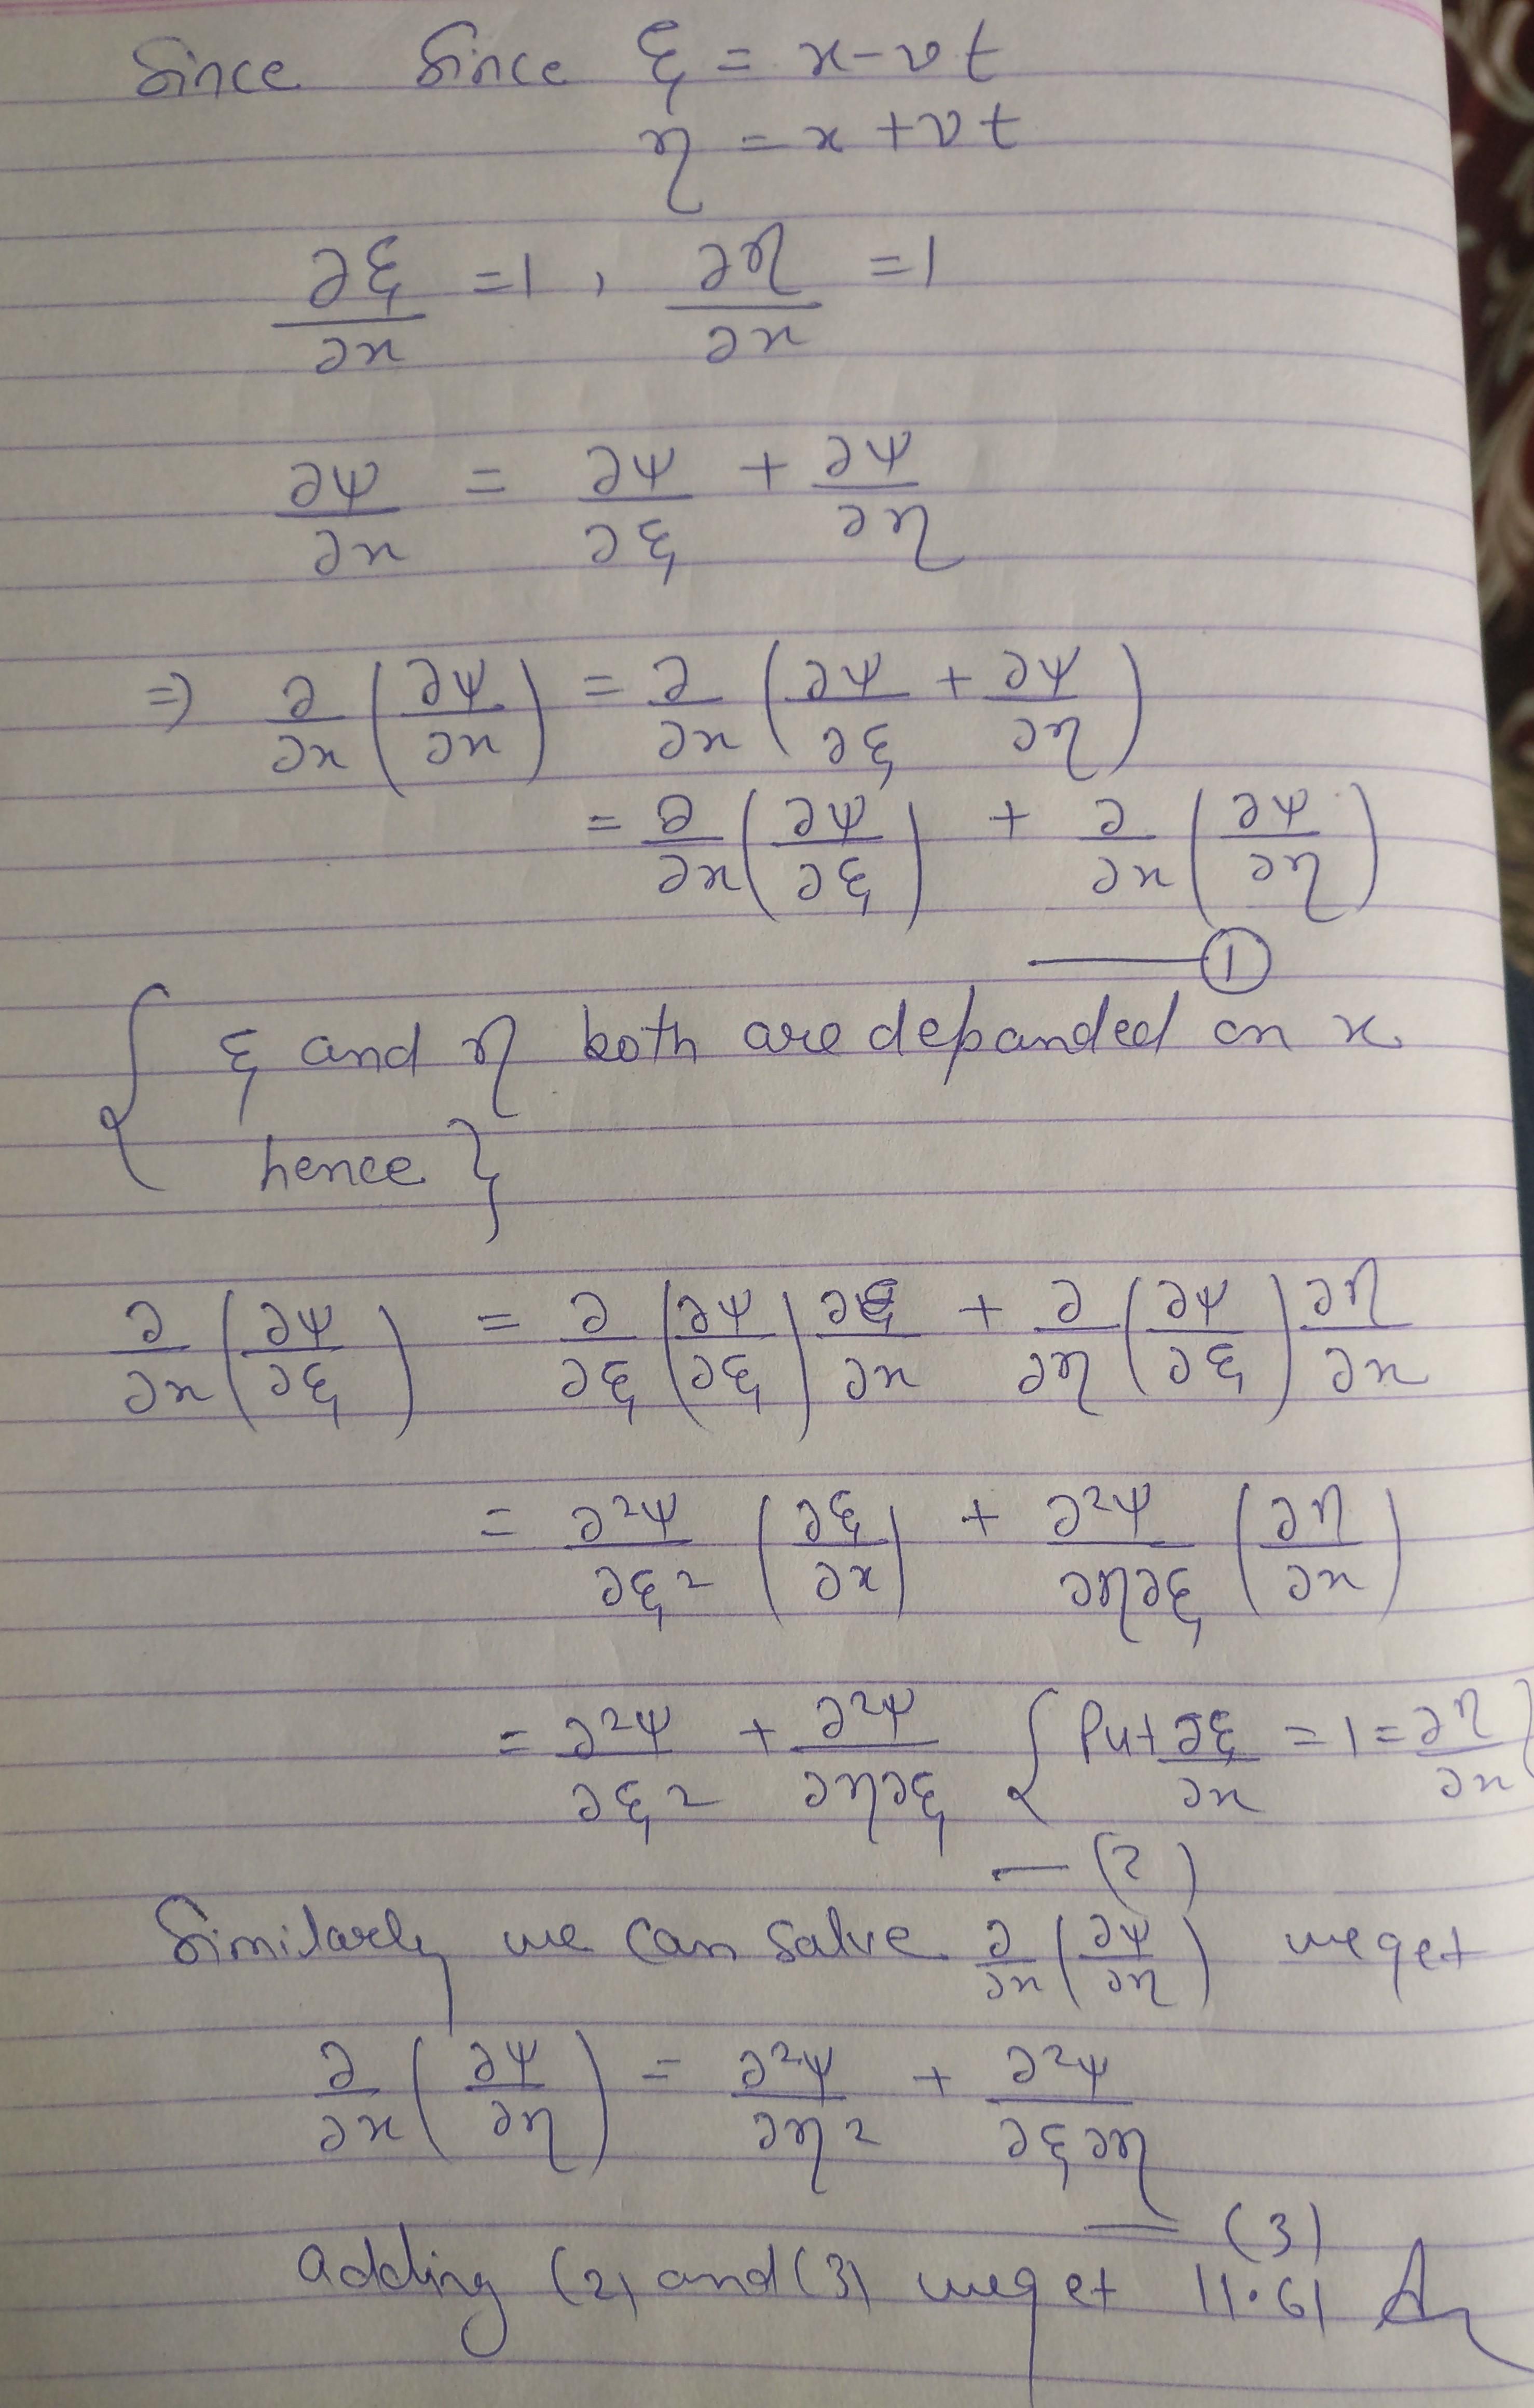 Since Since ξ = x-vt
η = x+vt
∂ξ/∂x =1, ∂η/∂x =1
∂ψ/∂x = ∂ψ/∂ξ + ∂ψ/∂η
⇒ ∂/∂x (∂ψ/∂x) = ∂/∂x (∂ψ/∂ξ + ∂ψ/∂η)
= ∂/∂x (∂ψ/∂ξ) + ∂/∂x (∂ψ/∂η)
—— ①
{ ξ and η both are depanded on x.
hence }
∂/∂x (∂ψ/∂ξ) = ∂/∂ξ (∂ψ/∂ξ) ∂ξ/∂x + ∂/∂η (∂ψ/∂ξ) ∂η/∂x
= ∂²ψ/∂ξ² (∂ξ/∂x) + ∂²ψ/∂η∂ξ (∂η/∂x)
= ∂²ψ/∂ξ² + ∂²ψ/∂η∂ξ { Put ∂ξ/∂x = 1 = ∂η/∂x }
— (2)
Similarly we can salve ∂/∂x (∂ψ/∂η) we get
∂/∂x (∂ψ/∂η) = ∂²ψ/∂η² + ∂²ψ/∂ξ∂η
— (3)
adding (2) and (3) we get 11.61